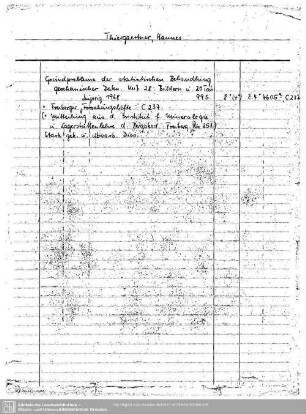 Thiergartner, Hannes
Grundprobleme der statistischen Behandlung
geochemischer Daten. Mit 28 Bildern u. 25 Tab.
Leipzig 1968 99 S. 8° (4°) Z. 4° 4605 m C 237
= Freiberger Forschungshefte C 237.
(= Mitteilung aus d. Institut f. Mineralogie
u. Lagerstättenlehre d. Bergakad. Freiberg
Stark gek. u. überarb. Diss.
Sächsische Landesbibliothek -
Staats- und Universitätsbibliothek Dresden